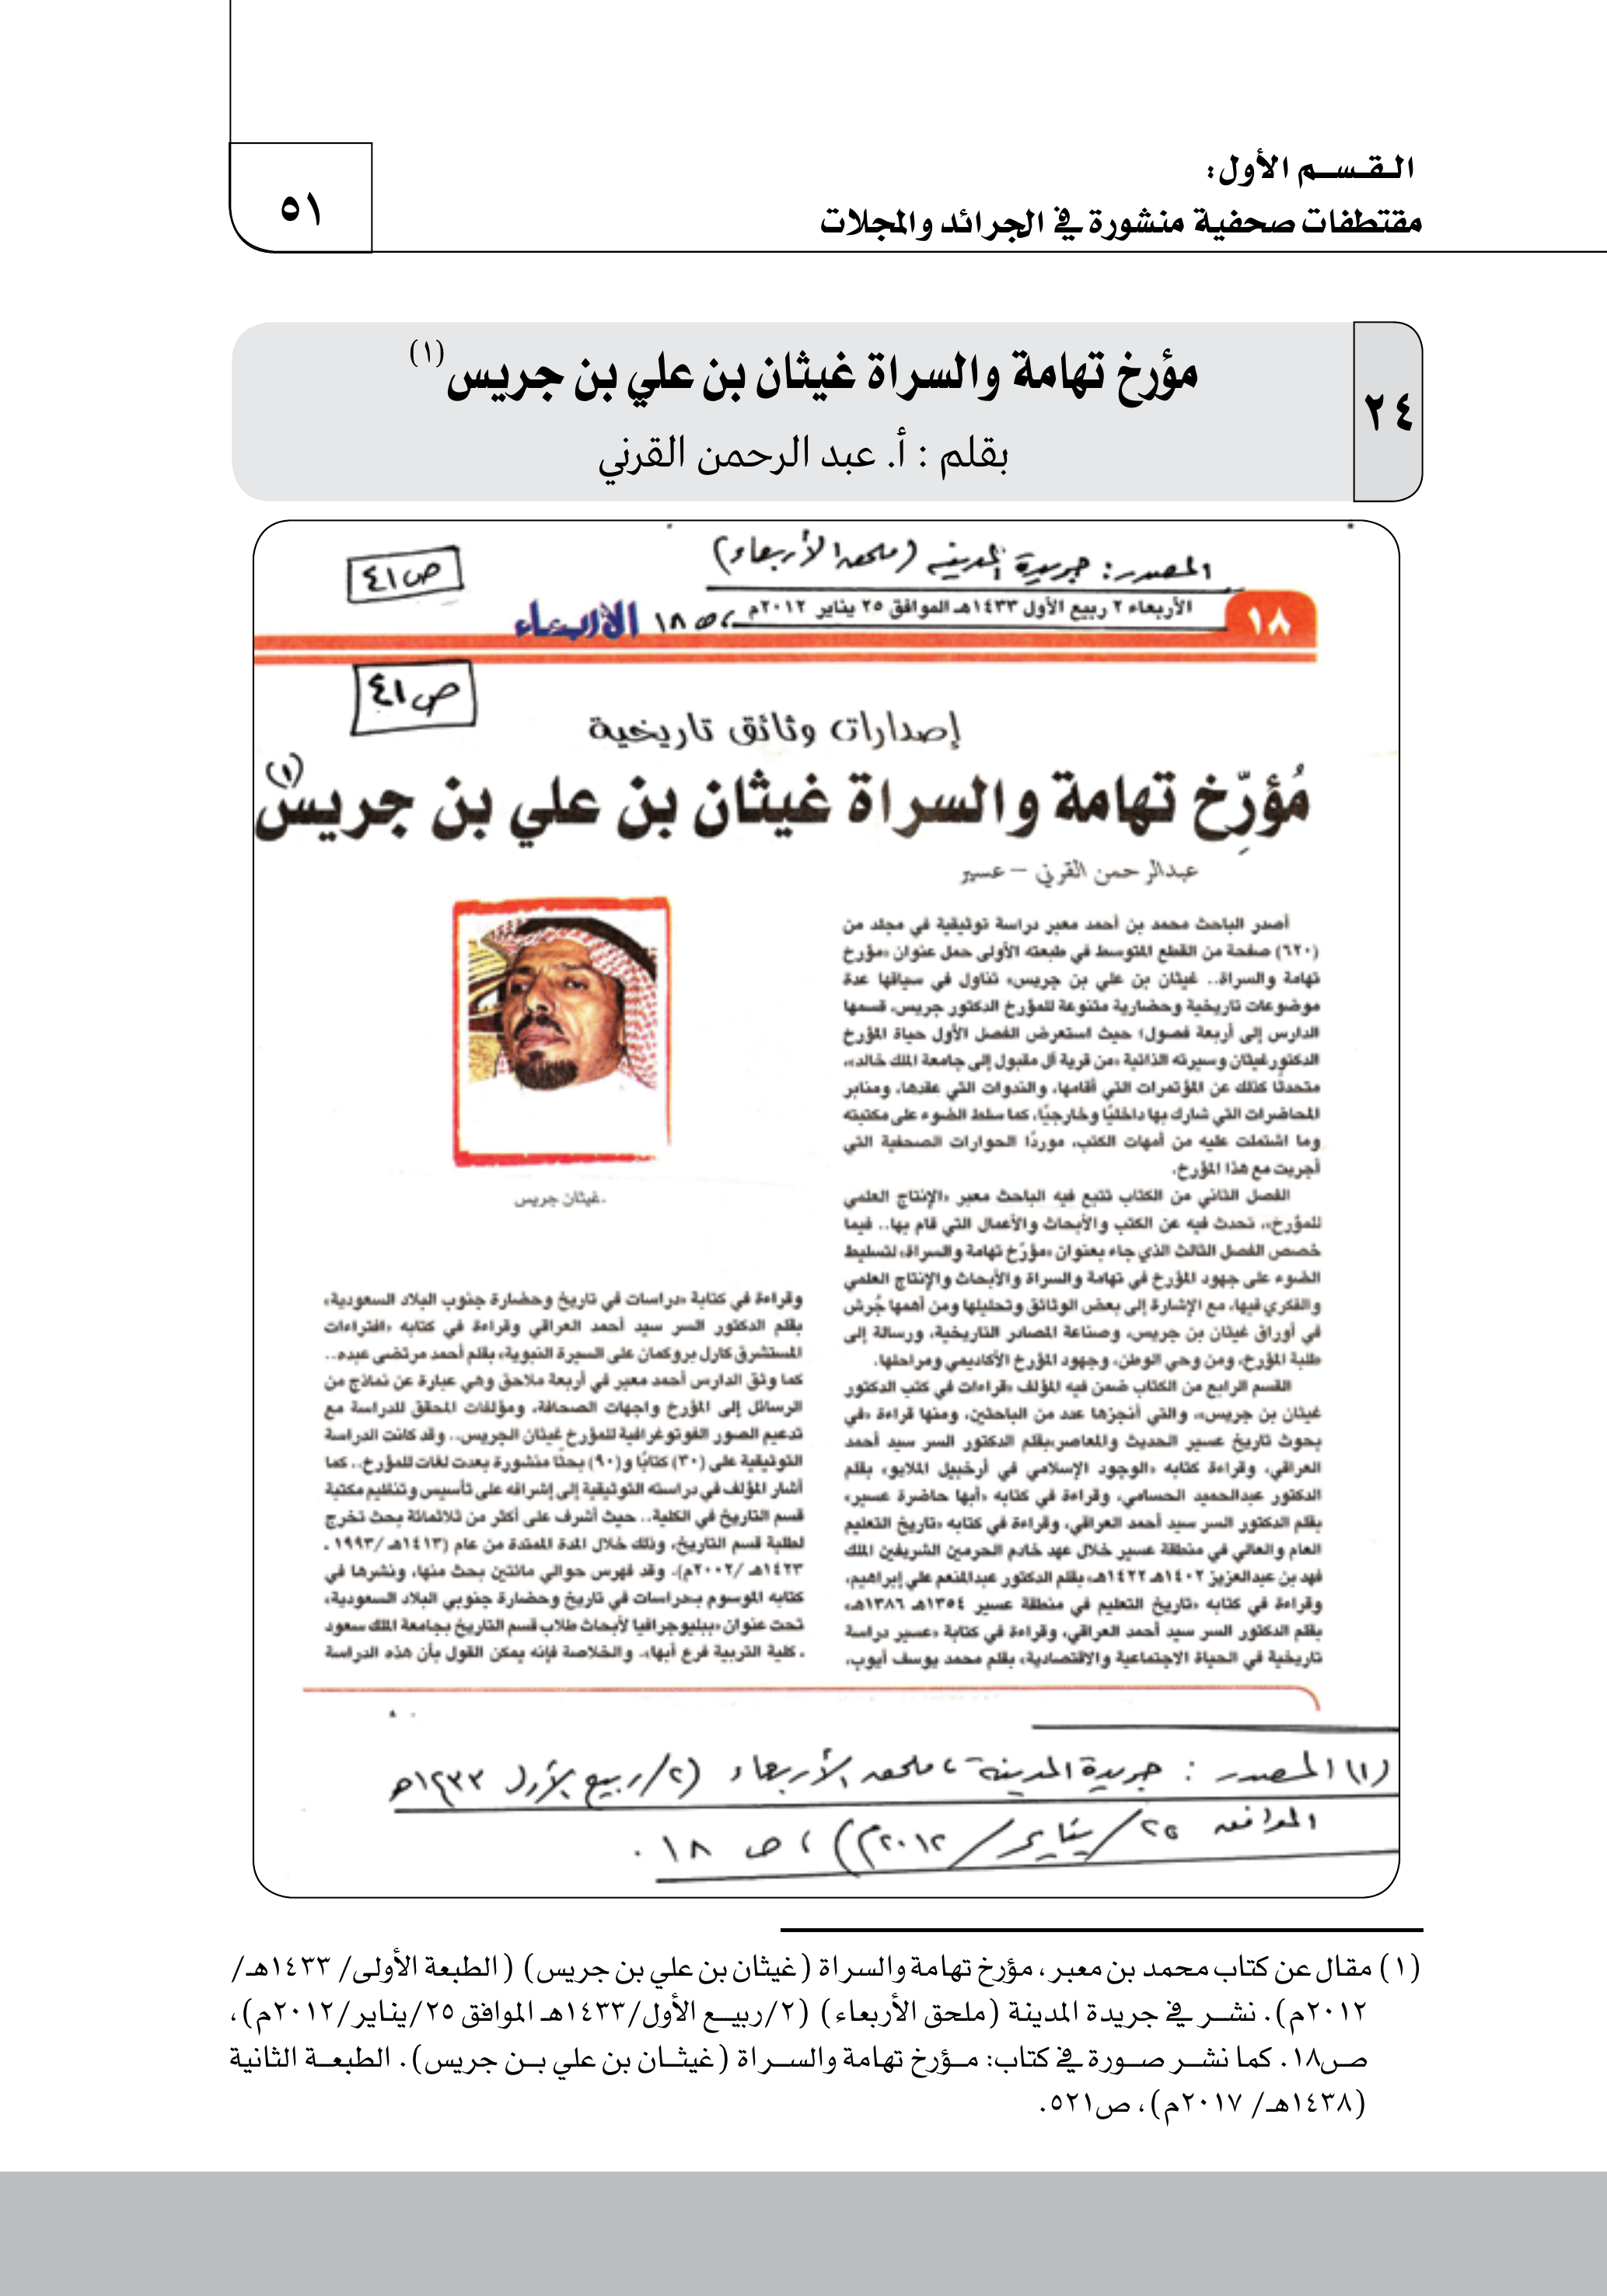 القسم الأول:
مقتطفات صحفية منشورة في الجرائد والمجلات
٥١
٢٤
مؤرخ تهامة والسراة غيثان بن علي بن جريس(١)
بقلم : أ. عبد الرحمن القرني
المصدر: جريدة المدينه (ملحق الأربعاء)
ص٤١
١٨
الأربعاء ٢ ربيع الأول ١٤٣٣هـ الموافق ٢٥ يناير ٢٠١٢م، ص ١٨
الأربعاء
ص٤١
إصدارات وثائق تاريخية
مُؤرِّخ تهامة والسراة غيثان بن علي بن جريس (١)
عبدالرحمن القرني – عسير
أصدر الباحث محمد بن أحمد معبر دراسة توثيقية في مجلد من
(٦٢٠) صفحة من القطع المتوسط في طبعته الأولى حمل عنوان «مؤرخ
تهامة والسراة.. غيثان بن علي بن جريس» تناول في سياقها عدة
موضوعات تاريخية وحضارية متنوعة للمؤرخ الدكتور جريس، قسمها
الدارس إلى أربعة فصول؛ حيث استعرض الفصل الأول حياة المؤرخ
الدكتور غيثان وسيرته الذاتية «من قرية آل مقبول إلى جامعة الملك خالد»،
متحدثًا كذلك عن المؤتمرات التي أقامها، والندوات التي عقدها، ومنابر
المحاضرات التي شارك بها داخليًا وخارجيًا، كما سلط الضوء على مكتبته
وما اشتملت عليه من أمهات الكتب، موردًا الحوارات الصحفية التي
أجريت مع هذا المؤرخ.
الفصل الثاني من الكتاب تتبع فيه الباحث معبر «الإنتاج العلمي
للمؤرخ»، تحدث فيه عن الكتب والأبحاث والأعمال التي قام بها.. فيما
خصص الفصل الثالث الذي جاء بعنوان «مؤرّخ تهامة والسراة» لتسليط
الضوء على جهود المؤرخ في تهامة والسراة والأبحاث والإنتاج العلمي
والفكري فيها، مع الإشارة إلى بعض الوثائق وتحليلها ومن أهمها جُرش
في أوراق غيثان بن جريس، وصناعة المصادر التاريخية، ورسالة إلى
طلبة المؤرخ، ومن وحي الوطن، وجهود المؤرخ الأكاديمي ومراحلها.
القسم الرابع من الكتاب ضمن فيه المؤلف «قراءات في كتب الدكتور
غيثان بن جريس»، والتي أنجزها عدد من الباحثين، ومنها قراءة «في
بحوث تاريخ عسير الحديث والمعاصر»بقلم الدكتور السر سيد أحمد
العراقي، وقراءة كتابه «الوجود الإسلامي في أرخبيل الملايو» بقلم
الدكتور عبدالحميد الحسامي، وقراءة في كتابه «أبها حاضرة عسير»
بقلم الدكتور السر سيد أحمد العراقي، وقراءة في كتابه «تاريخ التعليم
العام والعالي في منطقة عسير خلال عهد خادم الحرمين الشريفين الملك
فهد بن عبدالعزيز ١٤٠٢هـ ١٤٢٢هـ» بقلم الدكتور عبدالمنعم علي إبراهيم،
وقراءة في كتابه «تاريخ التعليم في منطقة عسير ١٣٥٤هـ ١٣٨٦هـ»
بقلم الدكتور السر سيد أحمد العراقي، وقراءة في كتابة «عسير دراسة
تاريخية في الحياة الاجتماعية والاقتصادية» بقلم محمد يوسف أيوب،
.غيثان جريس
وقراءة في كتابة «دراسات في تاريخ وحضارة جنوب البلاد السعودية»
بقلم الدكتور السر سيد أحمد العراقي وقراءة في كتابه «افتراءات
المستشرق كارل بروكمان على السيرة النبوية» بقلم أحمد مرتضى عبده..
كما وثق الدارس أحمد معبر في أربعة ملاحق وهي عبارة عن نماذج من
الرسائل إلى المؤرخ واجهات الصحافة، ومؤلفات المحقق للدراسة مع
تدعيم الصور الفوتوغرافية للمؤرخ غيثان الجريس.. وقد كانت الدراسة
التوثيقية على (٣٠) كتابًا و(٩٠) بحثًا منشورة بعدت لغات للمؤرخ.. كما
أشار المؤلف في دراسته التوثيقية إلى إشرافه على تأسيس وتنظيم مكتبة
قسم التاريخ في الكلية.. حيث أشرف على أكثر من ثلاثمائة بحث تخرج
لطلبة قسم التاريخ، وذلك خلال المدة الممتدة من عام (١٤١٣هـ /١٩٩٣ .
١٤٢٣هـ /٢٠٠٢م). وقد فهرس حوالي مائتين بحث منها، ونشرها في
كتابه الموسوم بـ«دراسات في تاريخ وحضارة جنوبي البلاد السعودية»
تحت عنوان «ببليوجرافيا لأبحاث طلاب قسم التاريخ بجامعة الملك سعود
. كلية التربية فرع أبها». والخلاصة فإنه يمكن القول بأن هذه الدراسة
(١) المصدر : جريدة المدينة ، ملحق الأربعاء (٢/ربيع الأول ١٤٣٣هـ
الموافق ٢٥/يناير/٢٠١٢م) ، ص ١٨ .
(١) مقال عن كتاب محمد بن معبر، مؤرخ تهامة والسراة (غيثان بن علي بن جريس) (الطبعة الأولى/ ١٤٣٣هـ/
٢٠١٢م). نشر في جريدة المدينة (ملحق الأربعاء) (٢/ربيع الأول/١٤٣٣هـ الموافق ٢٥/يناير/٢٠١٢م)،
ص١٨. كما نشر صورة في كتاب: مؤرخ تهامة والسراة (غيثان بن علي بن جريس). الطبعة الثانية
(١٤٣٨هـ/ ٢٠١٧م)، ص٥٢١.